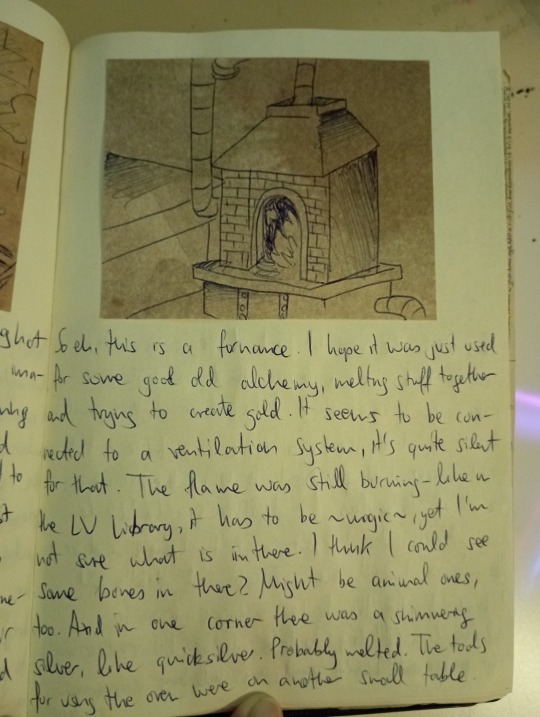 ght
ma-
ing
d
to
st
ne-
r
d
So eh, this is a furnance. I hope it was just used
for some good old alchemy, meltng stuff together
and trying to create gold. It seems to be con-
nected to a ventilation system, it's quite silent
for that. The flame was still burning - like in
the LV Library, it has to be ~magic~, yet I'm
not sure what is in there. I think I could see
some bones in there? Might be animal ones,
too. And in one corner there was a shimmering
silver, like quicksilver. Probably melted. The tools
for using the oven were on another small table.